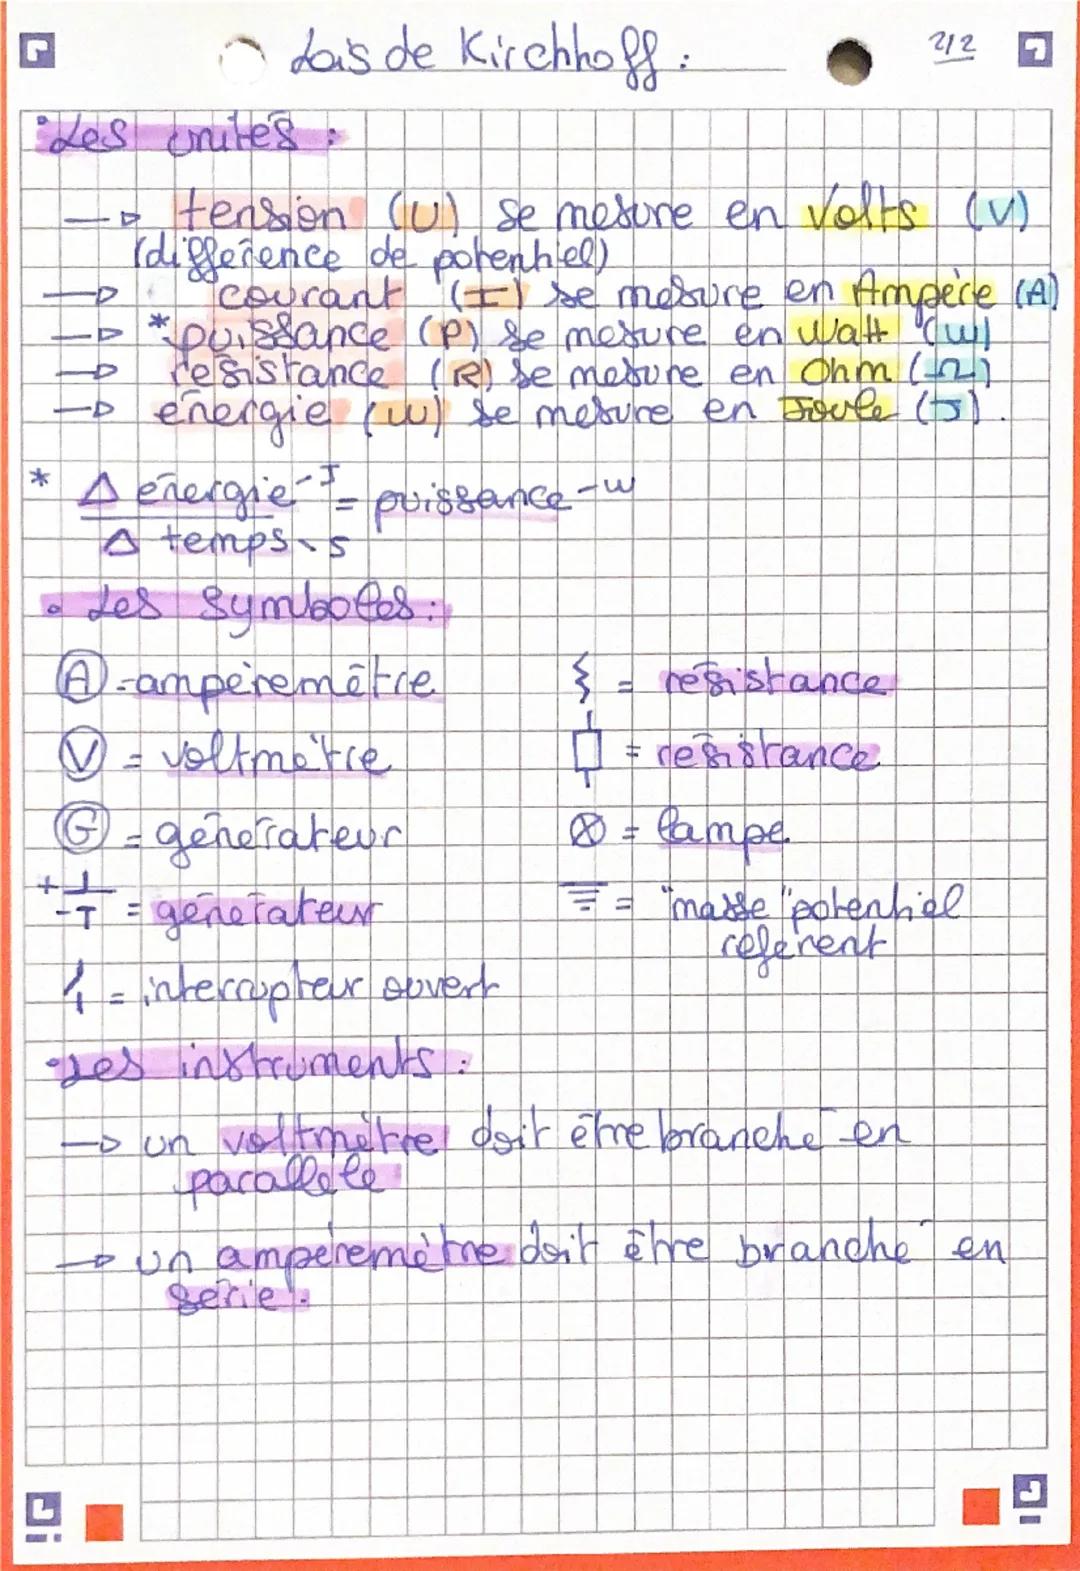 Lois de Kirchhoff :
2/2
• Les unités :
→ tension (U) se mesure en Volts (V)
(différence de potentiel)
→ courant (I) se mesure en Ampère (A)
→ *puissance (P) se mesure en Watt (W)
→ résistance (R) se mesure en Ohm (Ω)
→ énergie (W) se mesure en Joule (J).
* Δ énergie - J = puissance - W
Δ temps - s
• Les symboles :
A - ampèremètre
⌇ = résistance
V = voltmètre
= résistance
G = générateur
⊗ = lampe
+ - = générateur
= "masse" potentiel
référent
= interrupteur ouvert
• Les instruments :
→ un voltmètre doit être branché en
parallèle
→ un ampèremètre doit être branché en
série.